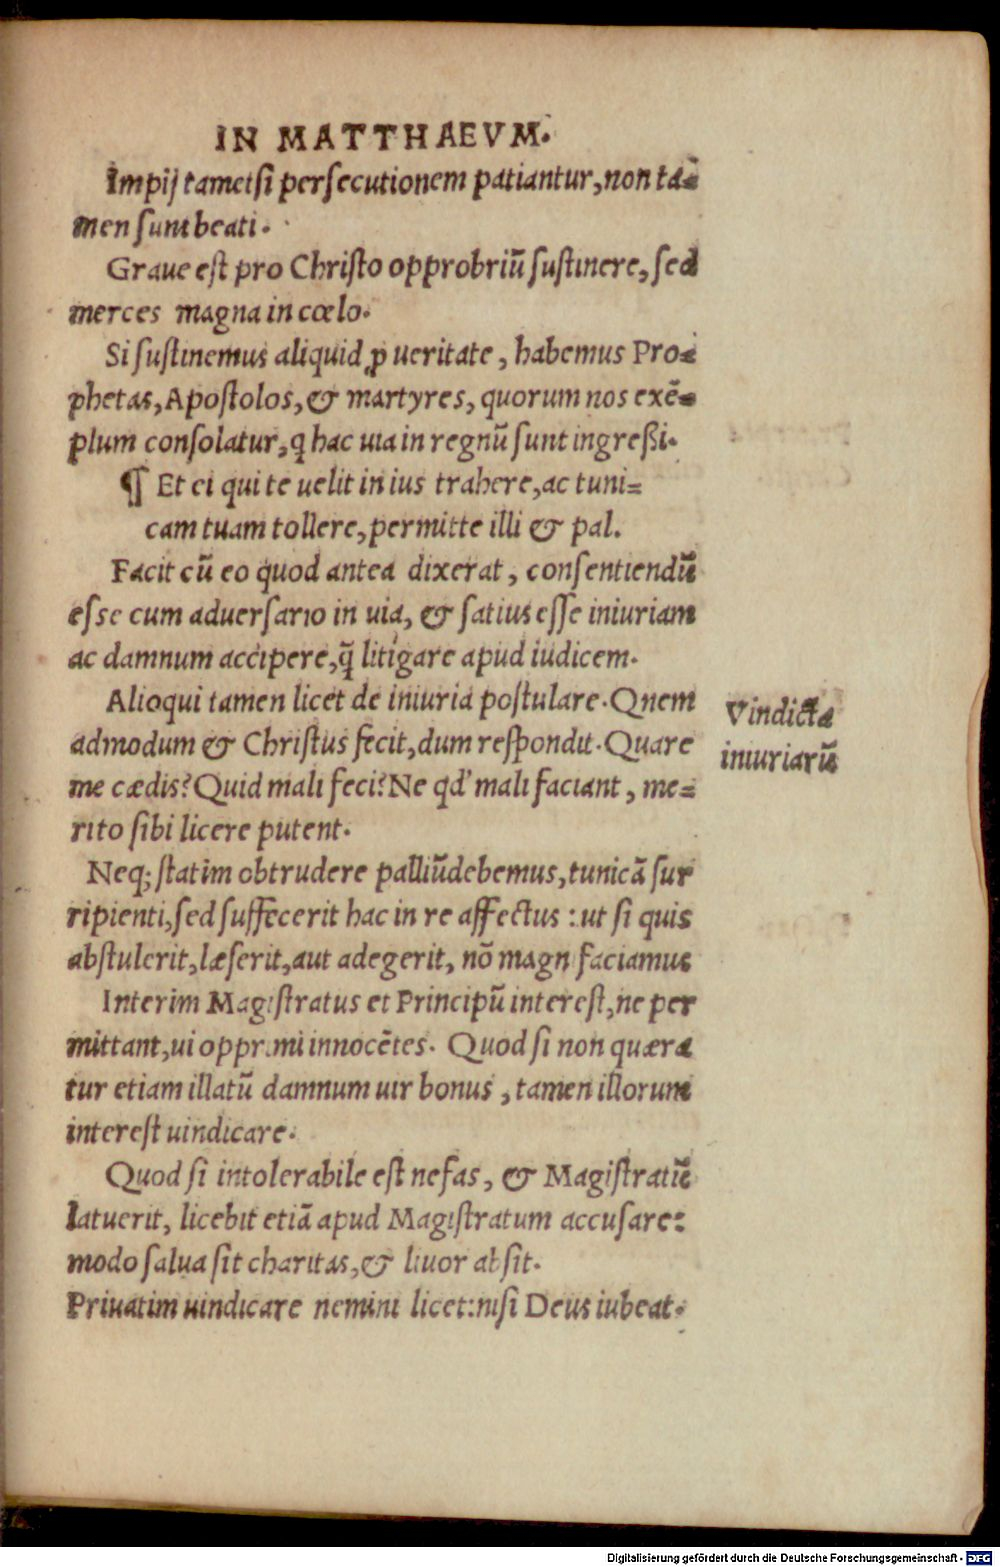 IN MATTHAEVM.
Impij tametsi persecutionem patiantur, non tā-
men sunt beati.
Graue est pro Christo opprobriū sustinere, sed
merces magna in cœlo.
Si sustinemus aliquid ꝓ ueritate, habemus Pro-
phetas, Apostolos, & martyres, quorum nos exē-
plum consolatur, ꝙ hac uia in regnū sunt ingreßi.
¶ Et ei qui te uelit in ius trahere, ac tuni=
cam tuam tollere, permitte illi & pal.
Facit cū eo quod antea dixerat, consentiendū
esse cum aduersario in uia, & satius esse iniuriam
ac damnum accipere, q̃ litigare apud iudicem.
Alioqui tamen licet de iniuria postulare. Quem
admodum & Christus fecit, dum respondit. Quare
me cædis? Quid mali feci? Ne qd' mali faciant, me=
rito sibi licere putent.
Neq; statim obtrudere palliūdebemus, tunicā sur
ripienti, sed suffecerit hac in re affectus: ut si quis
abstulerit, læserit, aut adegerit, nō magn faciamus
Interim Magistratus et Principū interest, ne per
mittant, ui opprimi innocētes. Quod si non quæra
tur etiam illatū damnum uir bonus, tamen illorum
interest uindicare.
Quod si intolerabile est nefas, & Magistratū
latuerit, licebit etiā apud Magistratum accusare:
modo salua sit charitas, & liuor absit.
Priuatim uindicare nemini licet: nisi Deus iubeat.
Vindicta
iniuriarū
Digitalisierung gefördert durch die Deutsche Forschungsgemeinschaft - DFG